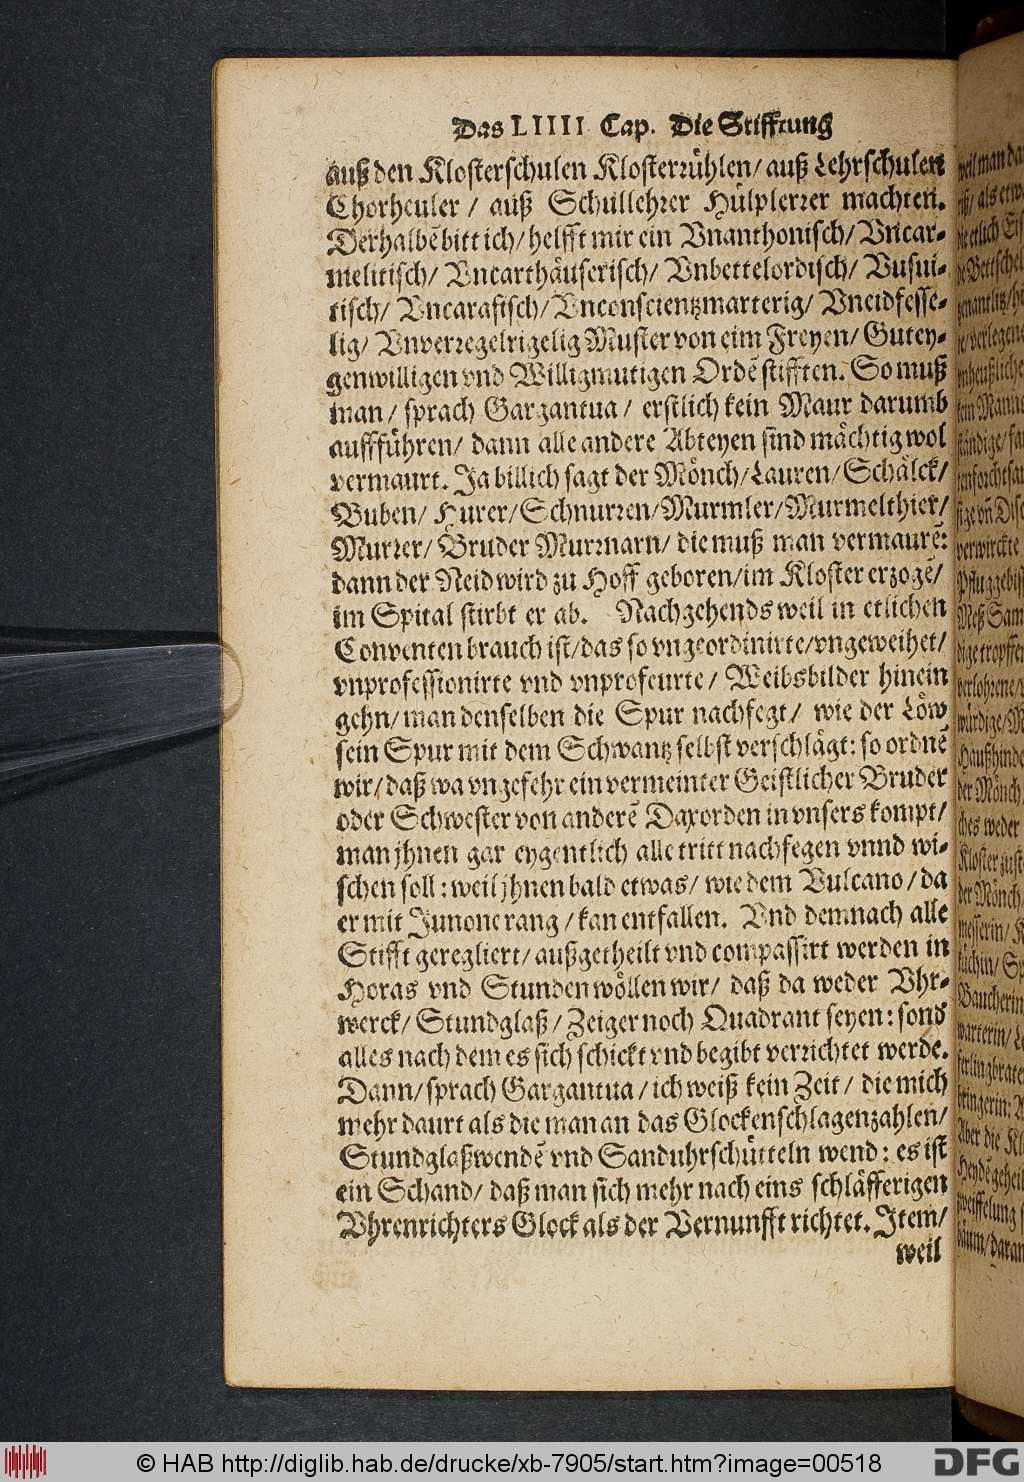 Das LIIII Cap. Die Stifftung
auß den Klosterschulen Klosterrühlen/ auß Lehrschulen
Chorheuler / auß Schullehrer Hülplerrer machten.
Derhalbẽ bitt ich/ helfft mir ein Vnanthonisch/ Vncar-
melitisch/ Vncarthäuserisch/ Vnbettelordisch/ Vusui-
tisch/ Vncarafisch/ Vnconscientzmarterig/ Vneidfesse-
lig/ Vnverregelrigelig Muster von eim Freyen/ Gutey-
genwilligen vnd Willigmutigen Ordẽ stifften. So muß
man / sprach Gargantua / erstlich kein Maur darumb
auffführen/ dann alle andere Abteyen sind mächtig wol
vermaurt. Ja billich sagt der Mönch/ Lauren/ Schälck/
Buben/ Hurer/ Schnurren/ Murmler/ Murmelthier/
Murrer/ Bruder Murrnarn/ die muß man vermaurẽ:
dann der Neid wird zu Hoff geboren/ im Kloster erzogẽ/
im Spital stirbt er ab. Nachgehends weil in etlichen
Conventen brauch ist/ das so vngeordinirte/ vngeweihet/
vnprofessionirte vnd vnprofeurte/ Weibsbilder hinein
gehn/ man denselben die Spur nachfegt/ wie der Löw
sein Spur mit dem Schwantz selbst verschlägt: so ordnẽ
wir/ daß wa vngefehr ein vermeinter Geistlicher Bruder
oder Schwester von anderẽ Daxorden in vnsers kompt/
man jhnen gar eygentlich alle tritt nachfegen vnnd wi-
schen soll: weil jhnen bald etwas/ wie dem Vulcano / da
er mit Junone rang / kan entfallen. Vnd demnach alle
Stifft geregliert/ außgetheilt vnd compassirt werden in
Horas vnd Stunden wöllen wir/ daß da weder Vhr-
werck/ Stundglaß/ Zeiger noch Quadrant seyen: sond
alles nach dem es sich schickt vnd begibt verrichtet werde.
Dann/ sprach Gargantua / ich weiß kein Zeit / die mich
mehr daurt als die man an das Glockenschlagenzahlen/
Stundglaßwendẽ vnd Sanduhrschütteln wend: es ist
ein Schand/ daß man sich mehr nach eins schläfferigen
Vhrenrichters Glock als der Vernunfft richtet. Item/
weil
© HAB http://diglib.hab.de/drucke/xb-7905/start.htm?image=00518
DFG